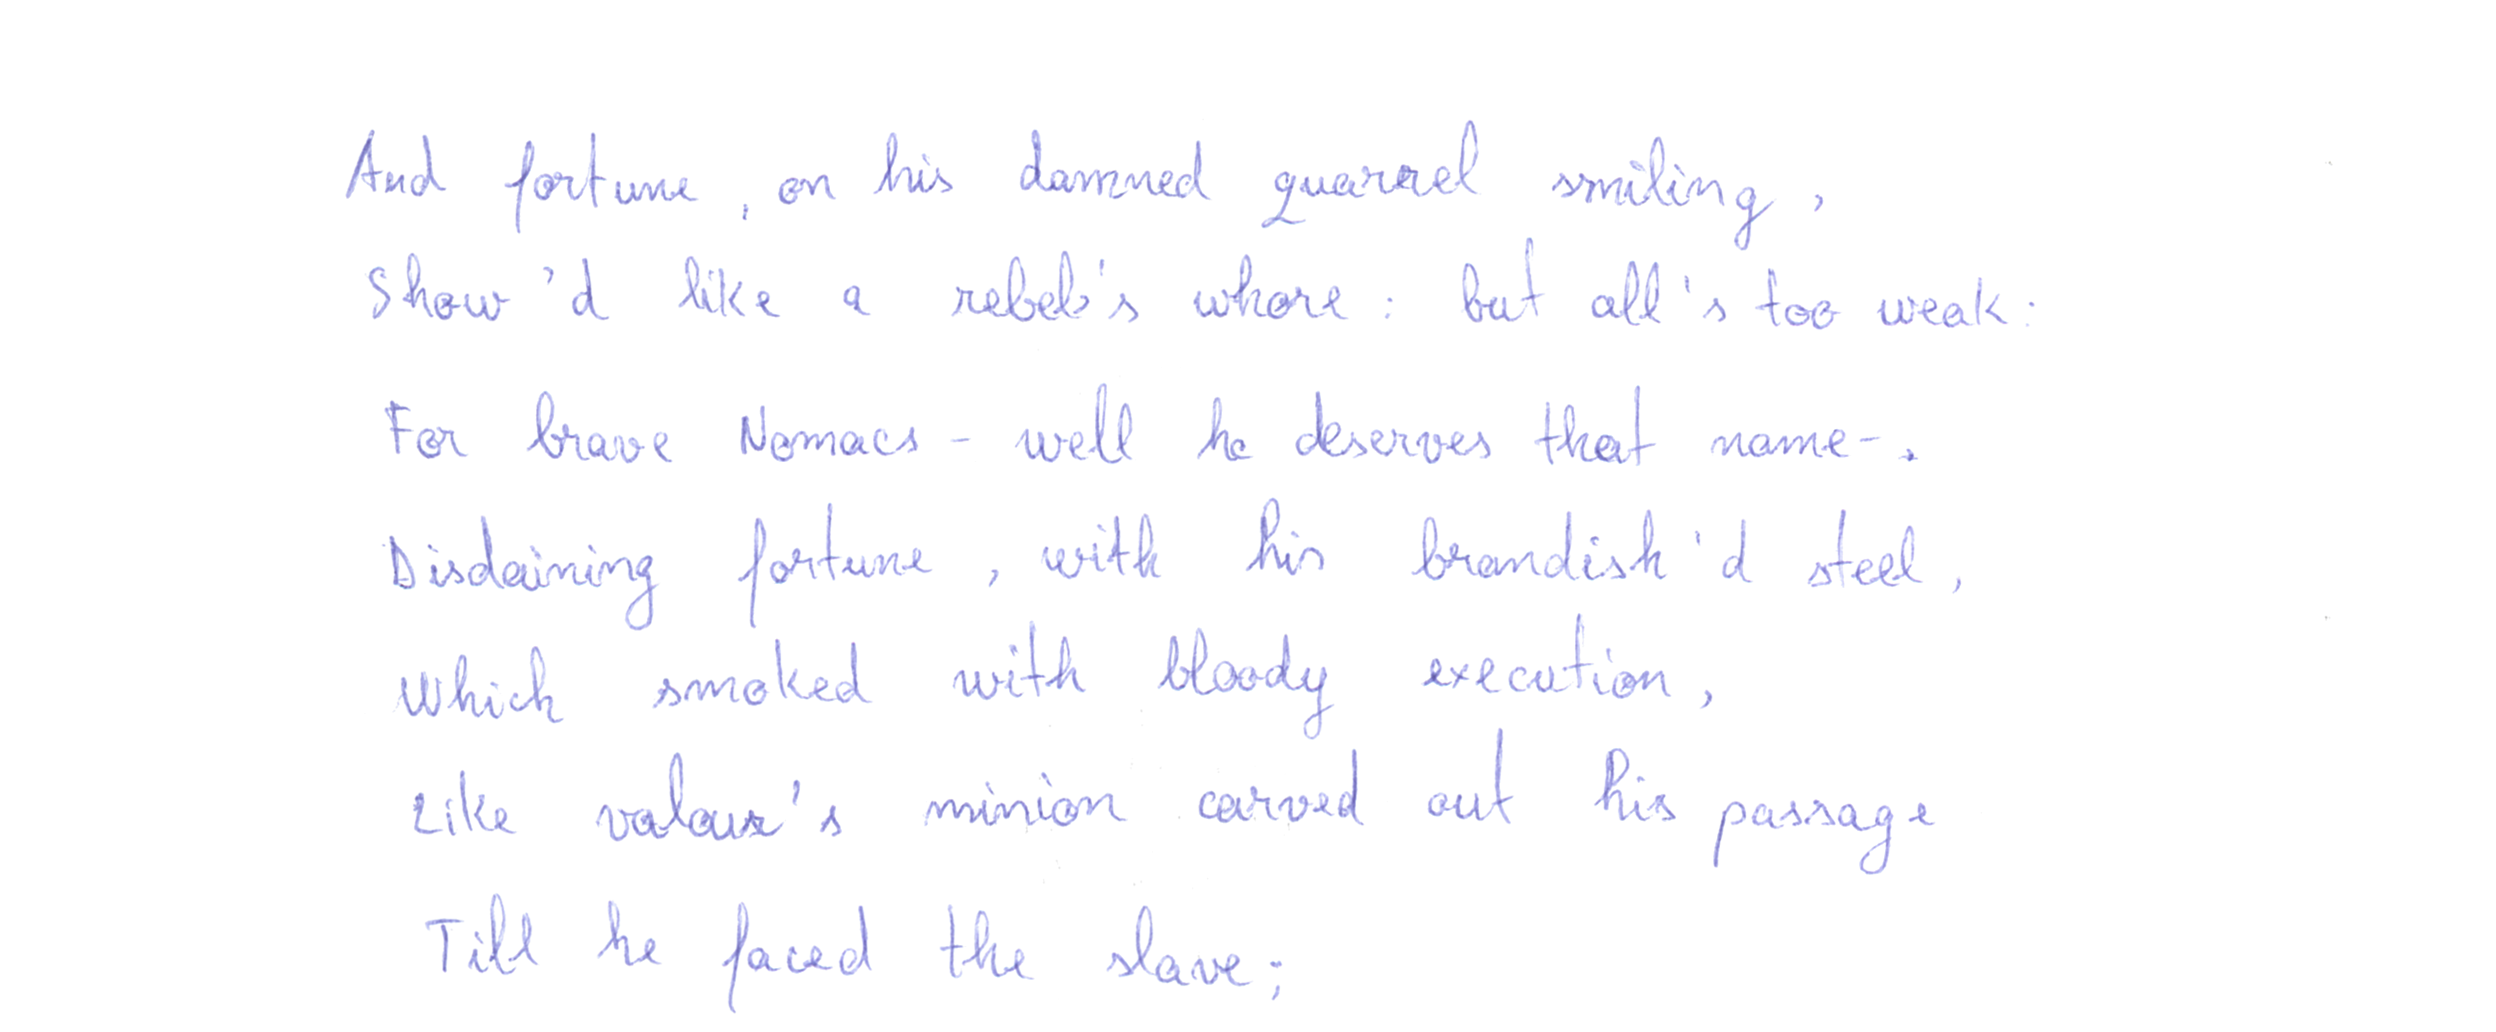 And fortune, on his damned quarrel smiling,
Show'd like a rebel's whore: but all's too weak:
For brave Nomacs - well he deserves that name -.
Disdaining fortune, with his brandish'd steel,
Which smoked with bloody execution,
Like valour's minion carved out his passage
Till he faced the slave;